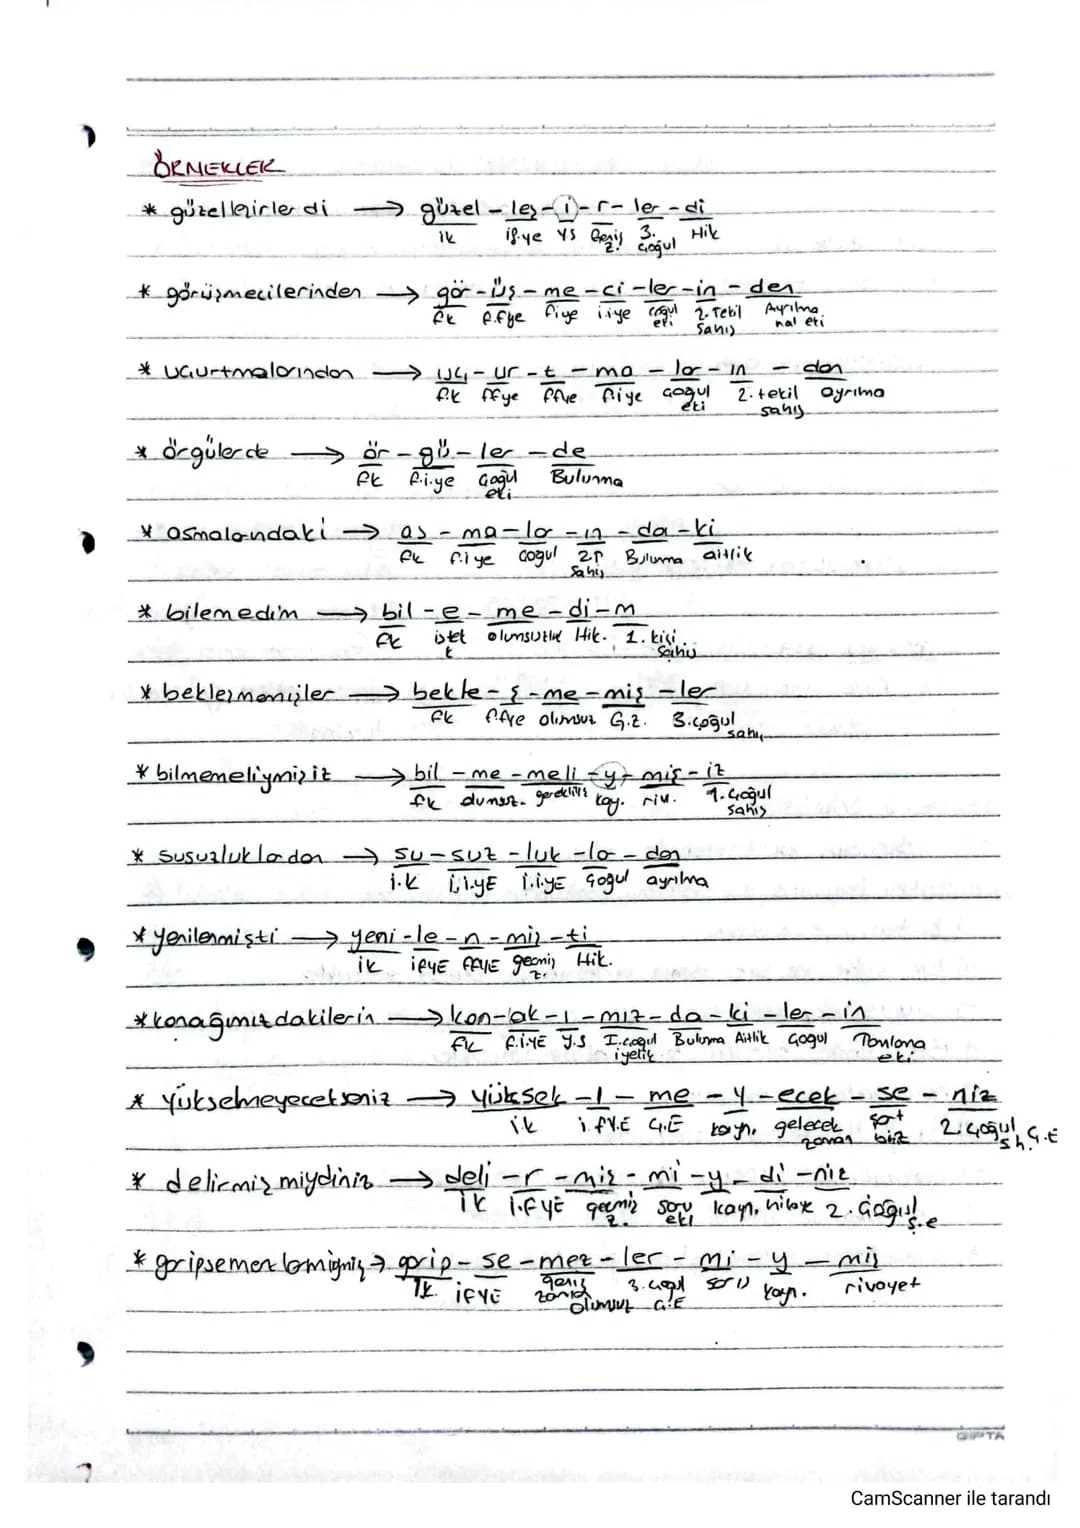 ÖRNEKLER
* güzelleşirlerdi → güzel - leş - i - r - ler - di
ik if.ye YS Geniş Z. 3. çoğul Hik
* görüşmecilerinden → gör - üş - me - ci - ler - in - den
fk f.fye fiye i.iye çoğul eti 2. Tekil Şahış Ayrılma hal eti
* uçurtmalarından → uç - ur - t - ma - lar - ın - dan
f.k ffye ffye fiye çoğul eti 2. tekil şahış ayrılma
* örgülerde → ör - gü - ler - de
fk f.i.ye Çoğul eti Bulunma
* asmalarındaki → as - ma - lar - ın - da - ki
fk f.i ye çoğul 2.T Şahış Bulunma aitlik
* bilemedim → bil - e - me - di - m
fk istek olumsuzluk Hik. 1. kişi şahış
* bekleşmemişler → bekle - ş - me - miş - ler
fk f.fye olumsuz G.Z. 3. çoğul şahış
* bilmemeliymişiz → bil - me - meli - y - miş - iz
fk olumsuz. gereklilik kay. riv. 1. çoğul şahış
* susuzluklardan → su - suz - luk - la - dan
i.k i.i.yE i.i.yE Çoğul ayrılma
* yenilenmişti → yeni - le - n - miş - ti
ik ifYE ffYE geçmiş z. Hik.
* konağımızdakilerin → kon - ak - ı - mız - da - ki - ler - in
fk f.iYE Y.S I. çoğul iyelik Bulunma Aitlik Çoğul Tamlama eki
* yükselmeyecekseniz → yüksek - l - me - y - ecek - se - niz
ik i.fY.E Ç.E kayn. gelecek zaman şart 2. çoğul şh. Ç.E
* delirmiş miydiniz → deli - r - miş - mi - y - di - niz
İK i.fYE geçmiş z. soru eki kayn. hikaye 2. Çoğul ş.e
* garipsemezlermiymiş → garip - se - mez - ler - mi - y - miş
İK ifYE geniş zaman olumsuz 3. çoğul Ç.E soru kayn. rivayet
GIPTA
CamScanner ile tarandı